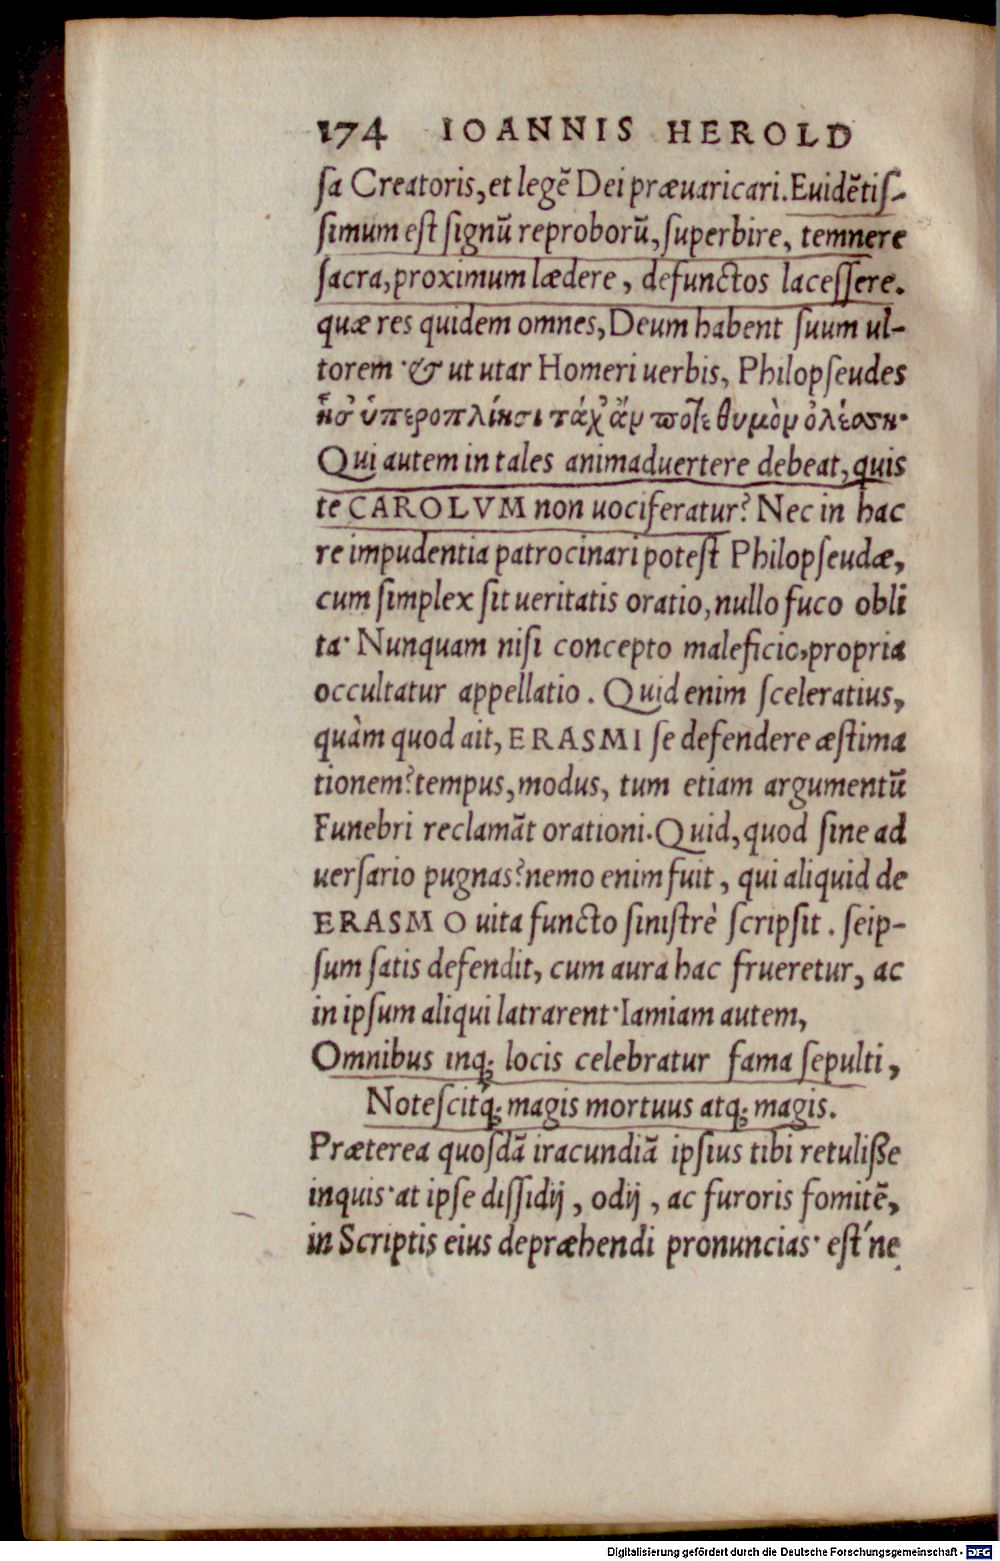 174 IOANNIS HEROLD
ſa Creatoris, et legẽ Dei præuaricari. Euidẽtiſ-
ſimum eſt ſignũ reproborũ, ſuperbire, temnere
ſacra, proximum lædere, defunctos laceſſere.
quæ res quidem omnes, Deum habent ſuum ul-
torem · & ut utar Homeri uerbis, Philopſeudes
ᾗσ ὑπεροπλίῃσι τάχ᾽ ἄν ποτε θυμὸν ὀλέσσῃ·
Qui autem in tales animaduertere debeat, quis
te CAROLVM non uociferatur? Nec in hac
re impudentia patrocinari poteſt Philopſeudæ,
cum ſimplex ſit ueritatis oratio, nullo fuco obli
ta· Nunquam niſi concepto maleficio, propria
occultatur appellatio. Quid enim ſceleratius,
quàm quod ait, ERASMI ſe defendere æſtima
tionem? tempus, modus, tum etiam argumentũ
Funebri reclamãt orationi. Quid, quod ſine ad
uerſario pugnas? nemo enim fuit, qui aliquid de
ERASMO uita functo ſiniſtrè ſcripſit. ſeip-
ſum ſatis defendit, cum aura hac frueretur, ac
in ipſum aliqui latrarent· Iamiam autem,
Omnibus inq; locis celebratur fama ſepulti,
Noteſcitq́; magis mortuus atq; magis.
Præterea quoſdã iracundiã ipſius tibi retuliſſe
inquis· at ipſe diſſidij, odij, ac furoris fomitẽ,
in Scriptis eius depræhendi pronuncias· eſt́ ne
Digitalisierung gefördert durch die Deutsche Forschungsgemeinschaft - DFG